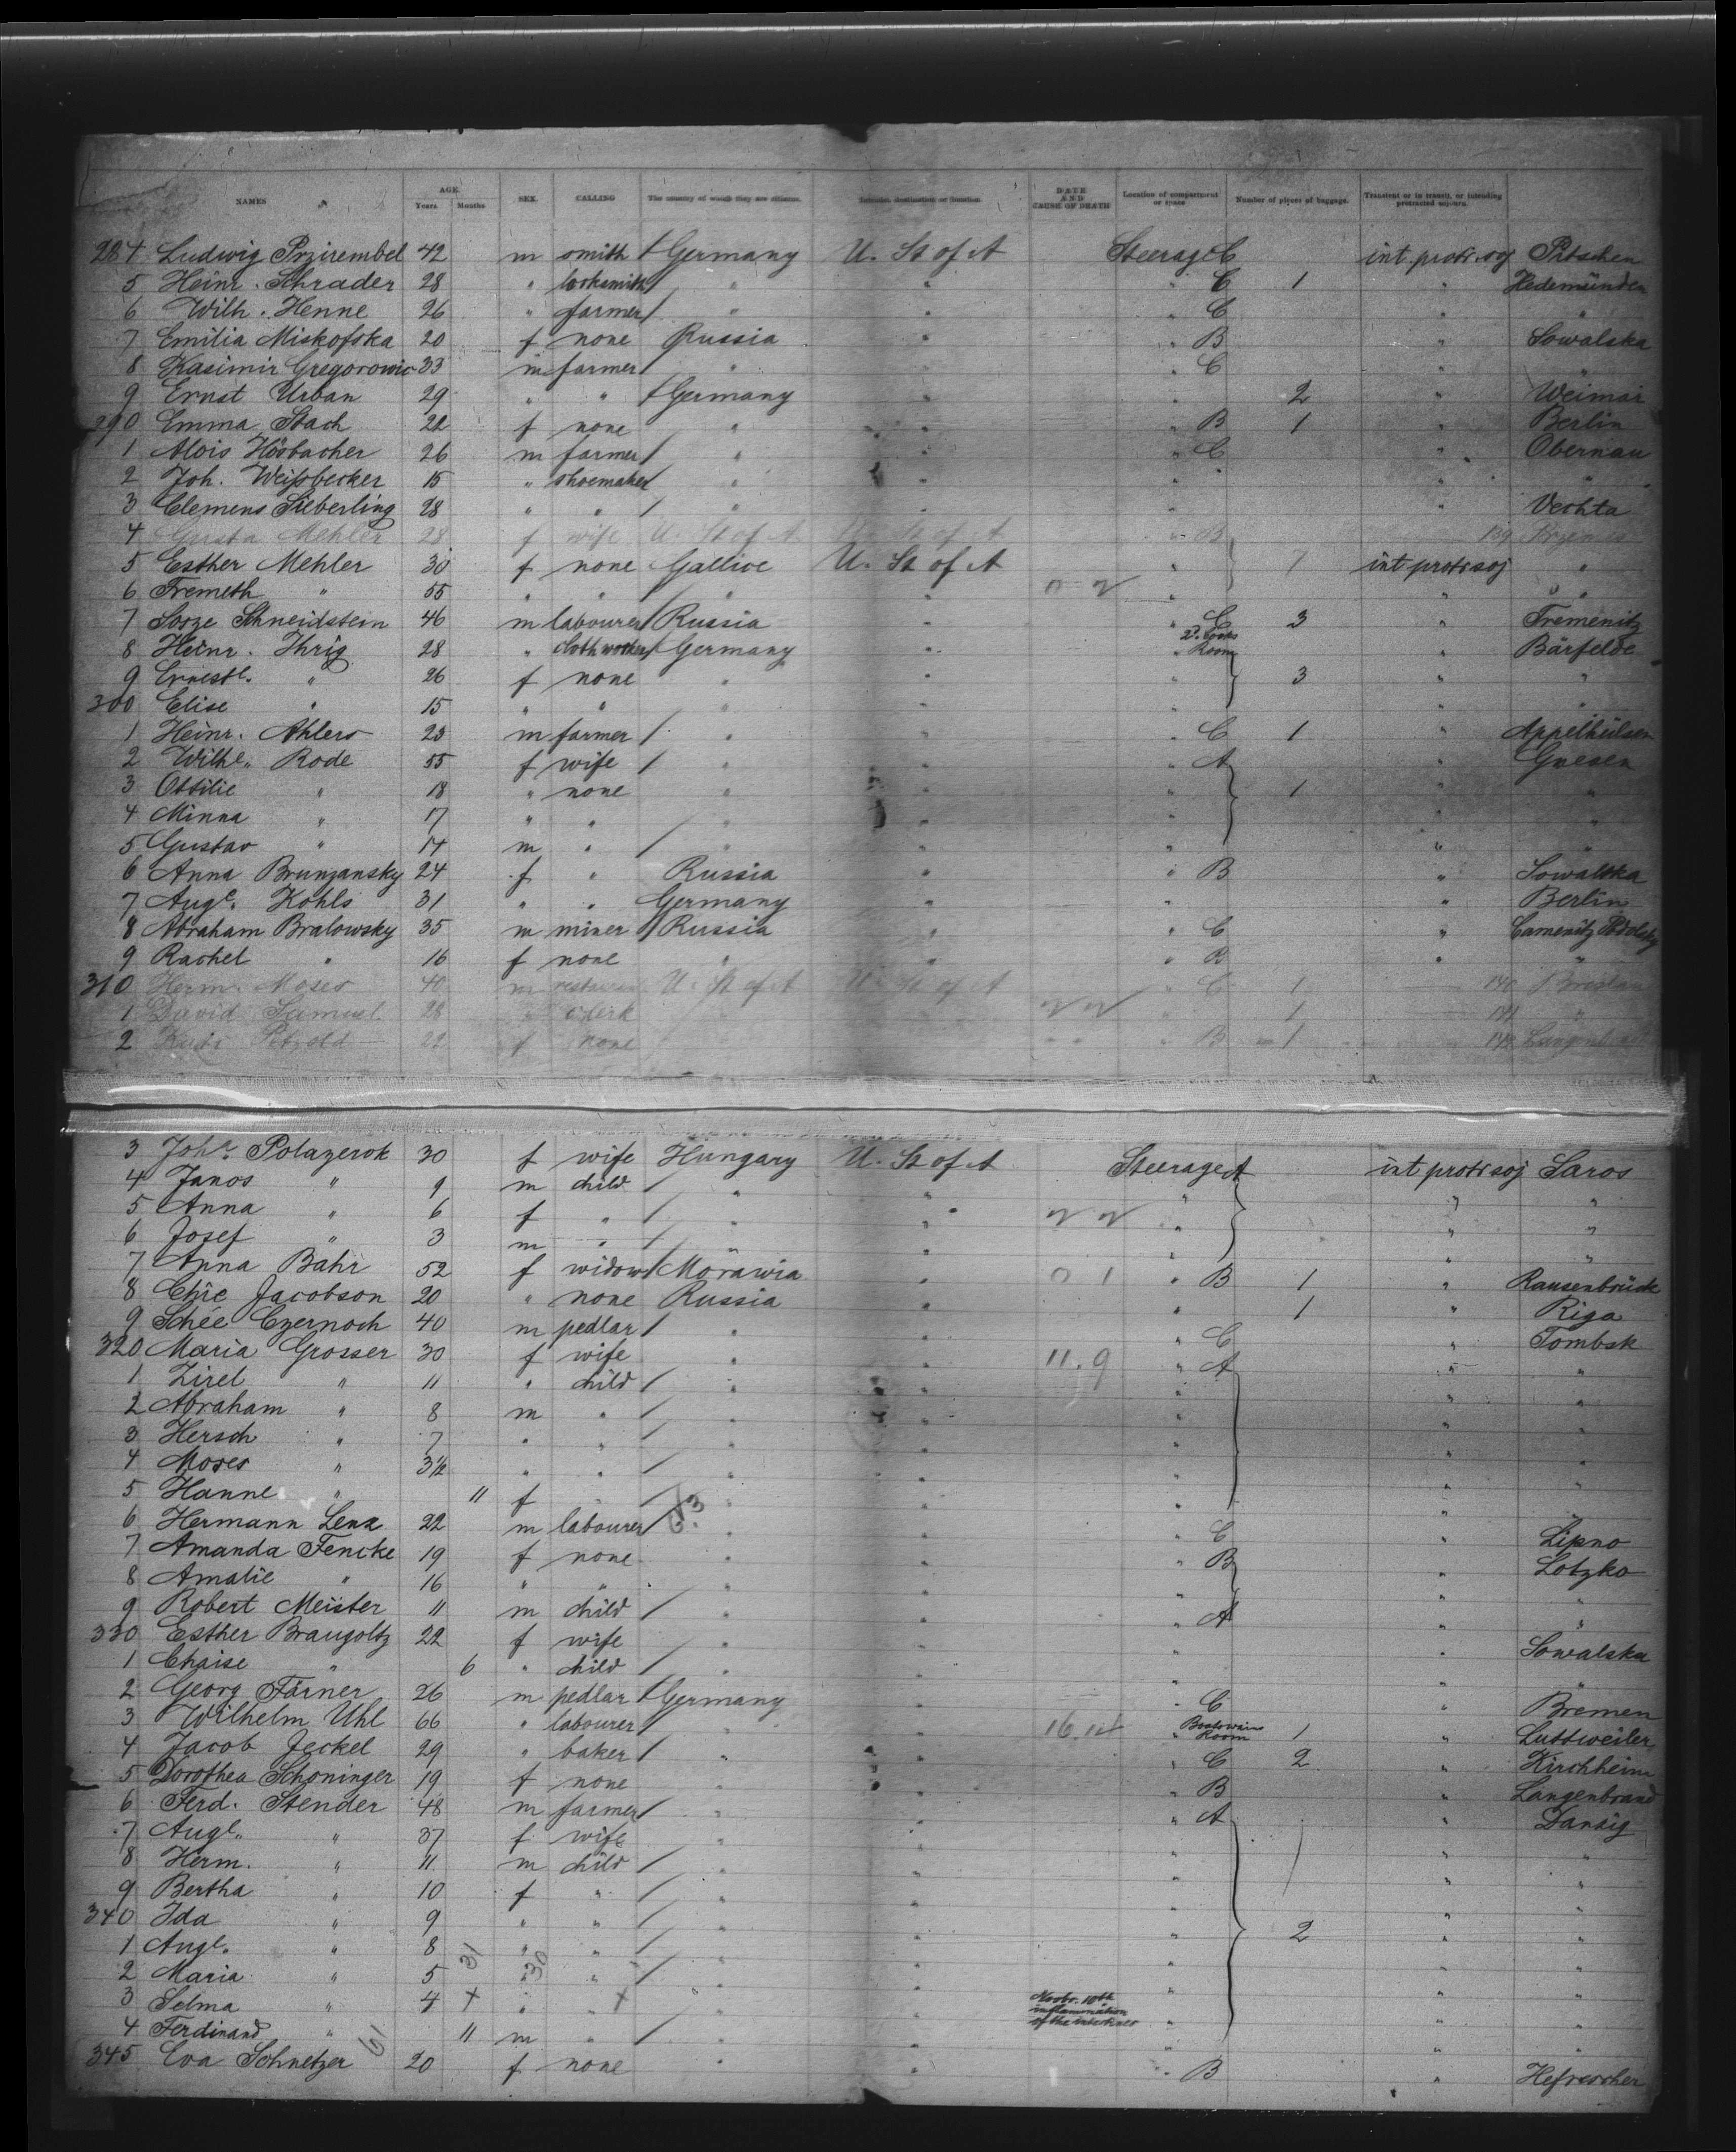 NAMES AGE. Years Months SEX. CALLING The country of which they are citizens. Intended destination or location. DATE AND CAUSE OF DEATH Location of compartment or space Number of pieces of baggage. Transient or in transit, or intending protracted sojourn.
284 Ludwig Przirembel 42 m smith Germany U. St of A Steerage C int protr. soj Pitschen
5 Heinr. Schrader 28 " locksmith " " " C 1 " Hedemünden
6 Wilh. Henne 26 " farmer " " " C " "
7 Emilia Miskofska 20 f none Russia " " B " Sowalska
8 Kasimir Gregorowic 33 m farmer " " " C " "
9 Ernst Urban 29 " " Germany " " 2 " Weimar
290 Emma Stach 22 f none " " " B 1 " Berlin
1 Alois Hösbacher 26 m farmer " " " C " Obernau
2 Joh. Weißbecker 15 " shoemaker " " " " "
3 Clemens Sieberling 28 " " " " " " Vechta
4 Gusta Mehler 28 f wife U. St of A U. St of A " B 139
5 Esther Mehler 30 f none Gallice U. St of A " int protr soj "
6 Fremeth " 55 " " " " " " "
7 Sorze Schneidstein 46 m labourer Russia " " C 3 " Tremenitz
8 Heinr. Ihrig 28 " cloth worker Germany " " 2d. Cooks Room " Bärfelde
9 Ernestl. " 26 f none " " " 3 " "
300 Elise " 15 " " " " " " "
1 Heinr. Ahlers 23 m farmer " " " C 1 " Appelhülsen
2 Wilhe. Rode 55 f wife " " " A " Gnesen
3 Ottilie " 18 " none " " " 1 " "
4 Minna " 17 " " " " " " "
5 Gustav " 14 m " " " " " "
6 Anna Brunzansky 24 f " Russia " " B " Sowalska
7 Auge. Kohls 31 " " Germany " " " Berlin
8 Abraham Bralowsky 35 m miner Russia " " C " Camenitz Podolsky
9 Rachel " 16 f none " " " B " "
310 Herm. Moses 40 m U. St of A U. St of A " C 1 140 Breslau
1 David Samuel 28 " clerk " 1 141 "
2 Petzold 22 f none B 1 142
3 Joha. Polazerok 30 f wife Hungary U. St of A Steerage A int protr soj Saros
4 Janos " 9 m child " " " " "
5 Anna " 6 f " " " " " "
6 Josef " 3 m " " " " " "
7 Anna Bahr 52 f widow Morawia " 0 1 " B 1 " Rausenbrück
8 Chic Jacobson 20 " none Russia " " 1 " Riga
9 Schée Czernoch 40 m pedlar " " " C " Tombsk
320 Maria Grosser 30 f wife " " 11.9 " A " "
1 Zirel " 11 " child " " " " "
2 Abraham " 8 m " " " " " "
3 Hersch " 7 " " " " " " "
4 Moses " 3½ " " " " " " "
5 Hanne " 11 f " " " " " "
6 Hermann Lenz 22 m labourer " " " C " Lipno
7 Amanda Fencke 19 f none " " " B " Lotzko
8 Amalie " 16 " " " " " " "
9 Robert Meister 11 m child " " " A " "
330 Esther Braugoltz 22 f wife " " " " Sowalska
1 Chaise " 6 " child " " " " "
2 Georg Färner 26 m pedlar Germany " " C " Bremen
3 Wilhelm Uhl 66 " labourer " " " Boatswains Room 1 " Luttweiler
4 Jacob Jeckel 29 " baker " " " C 2 " Kirchheim
5 Dorothea Schöninger 19 f none " " " B " Langenbrand
6 Ferd. Stender 48 m farmer " " " A " Danzig
7 Auge. " 37 f wife " " " " "
8 Herm. " 11 m child " " " " "
9 Bertha " 10 f " " " " " "
340 Ida " 9 " " " " " 2 " "
1 Auge. " 8 " " " " " " "
2 Maria " 5 " " " " " " "
3 Selma " 4 " " " " Novbr. 10th inflammation of the intestines " " "
4 Ferdinand " 11 m " " " " " "
345 Eva Schnetzer 20 f none " " " B "